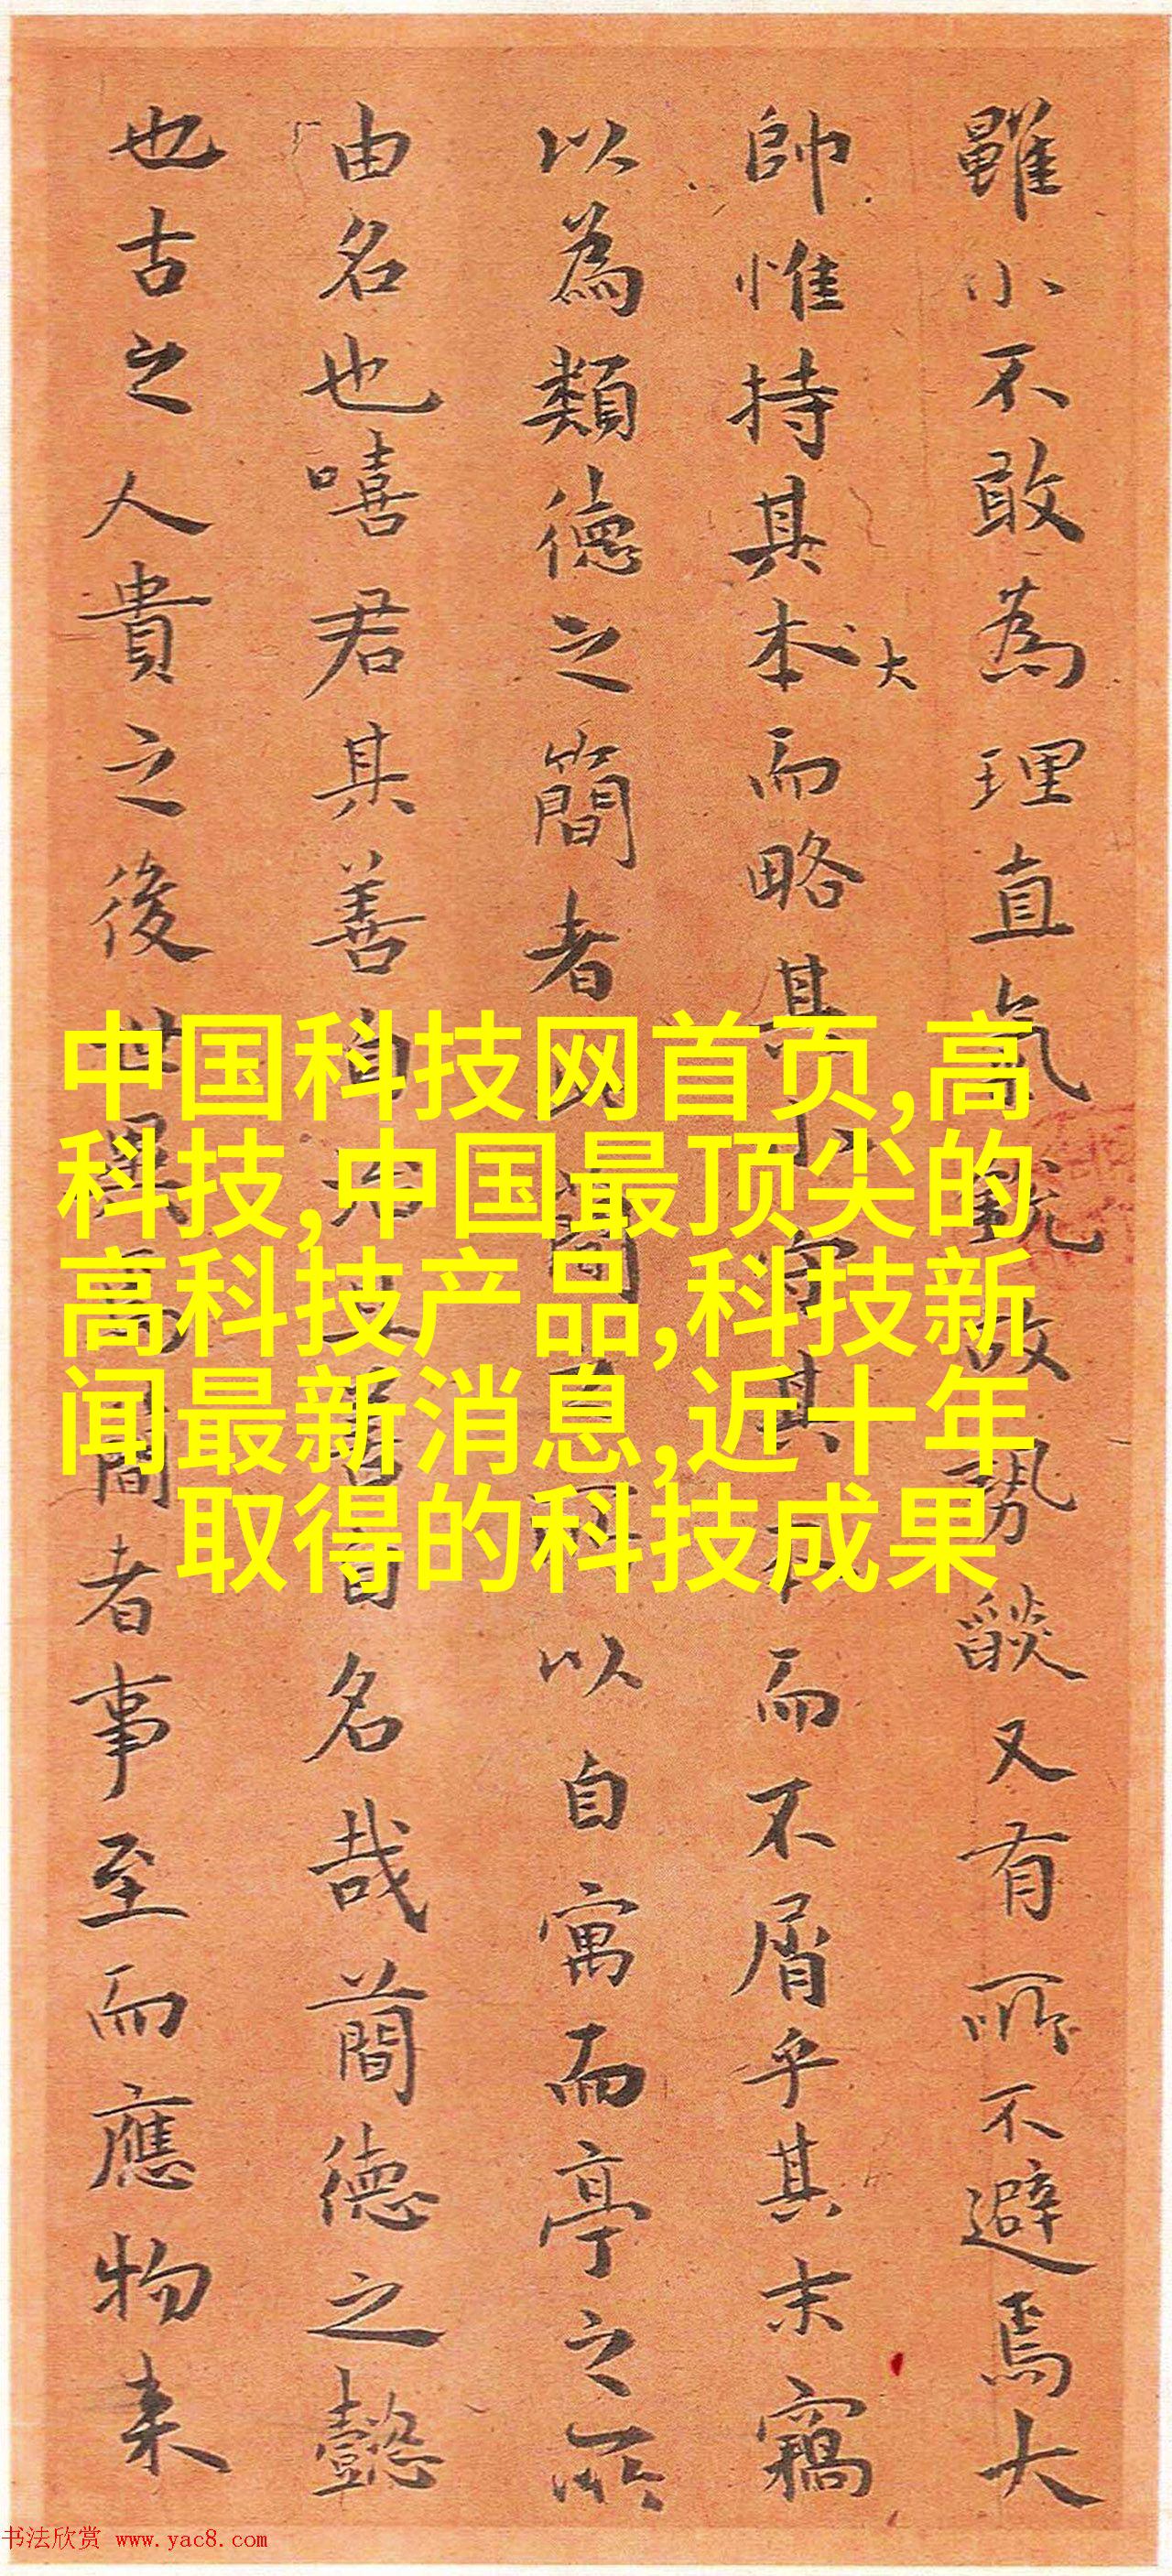 雖小不敢為理直氣
故勢燄又有所不避焉大
帥惟持其本而略其
大
其本而不屑乎其末竊
以為類德之簡者
以自寓而亭之所
由名也嘻君其善自
名哉蕳德之懿
也古之人貴之後世
者事至而應物來
中国科技网首页,高
科技,中国最顶尖的
高科技产品,科技新
闻最新消息,近十年
取得的科技成果
书法欣赏 www.yac8.com